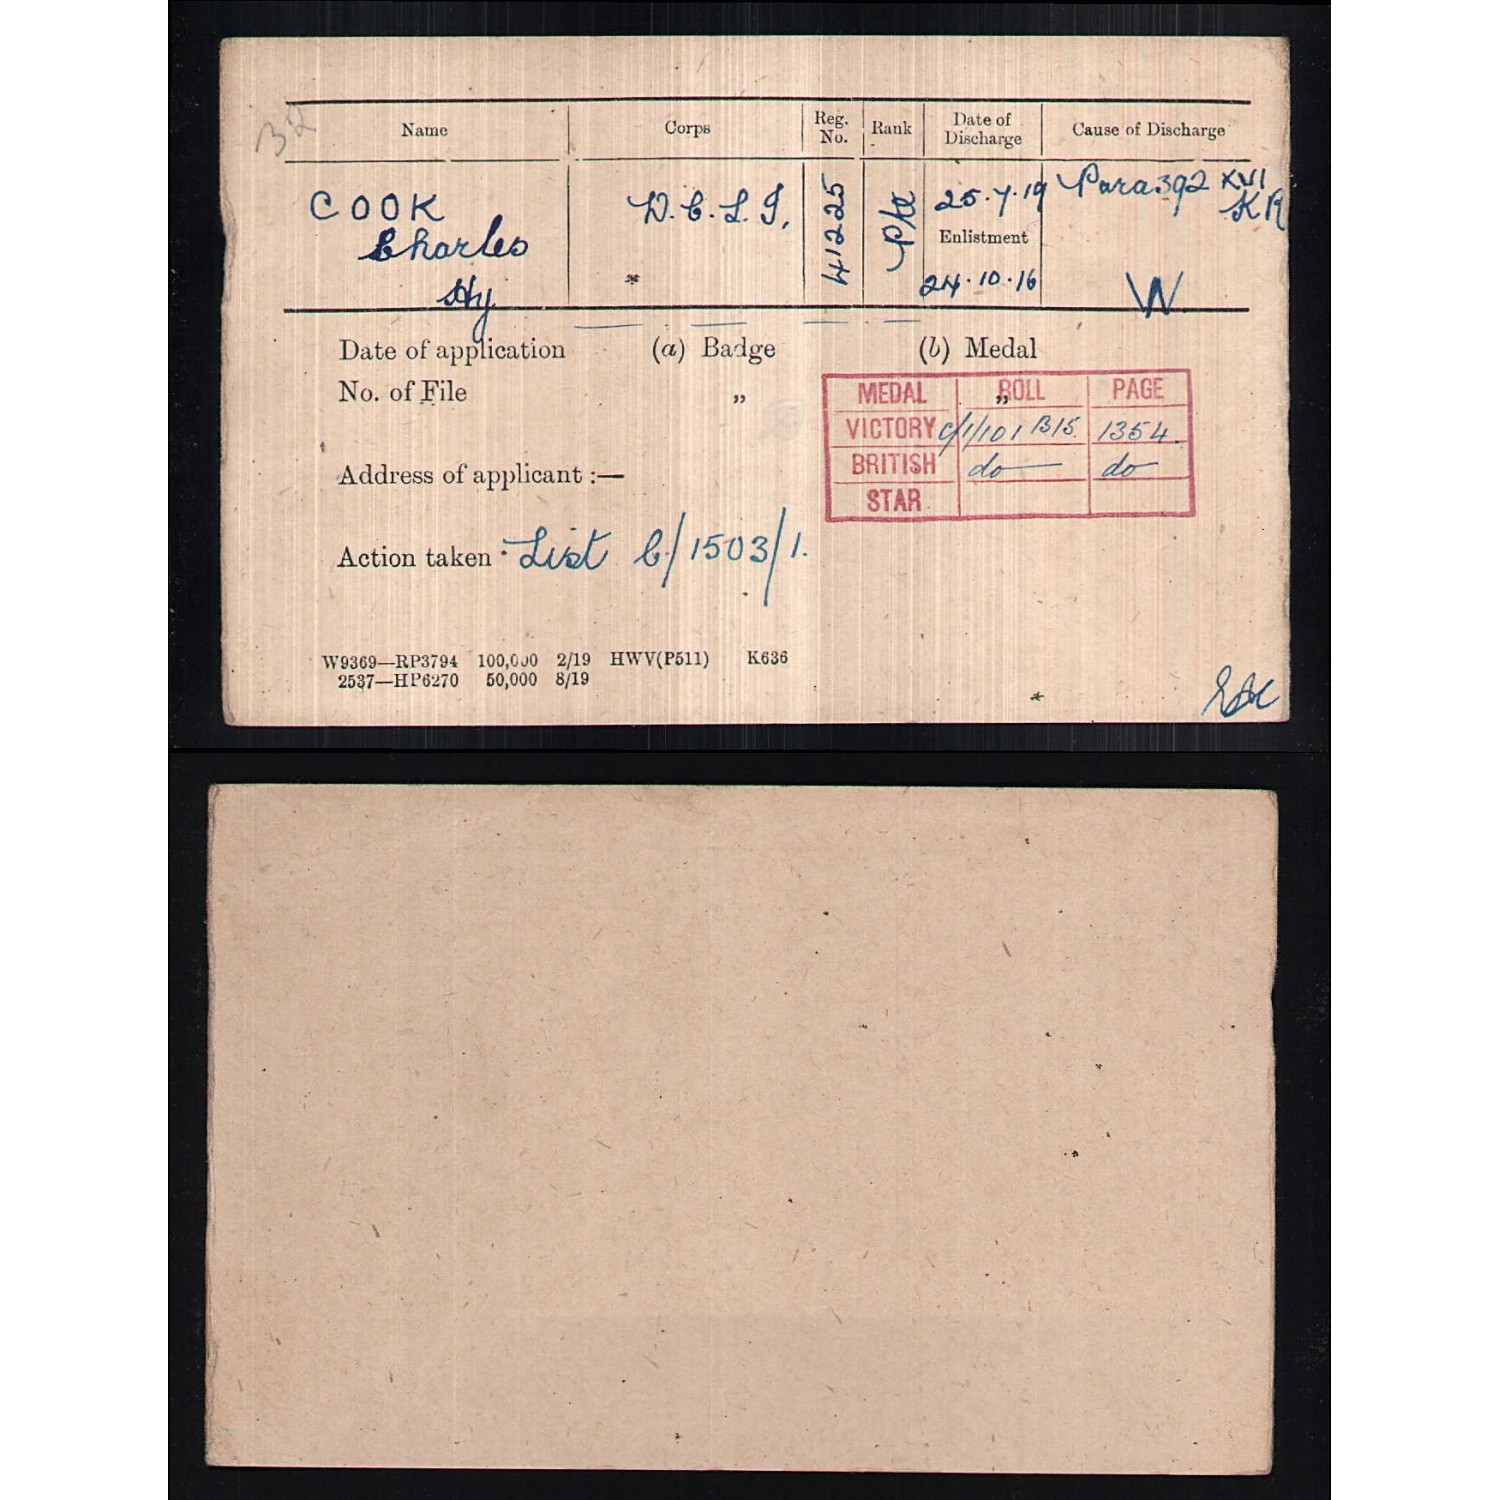 32
Name Corps Reg. No. Rank Date of Discharge Cause of Discharge
COOK D.C.L.I. 41225 Pte 25.7.19 Para 392 XVI
Charles Enlistment KR
Hy * 24.10.16 W
Date of application (a) Badge (b) Medal
No. of File „ „
MEDAL ROLL PAGE
VICTORY C/1/101 B15. 1354.
BRITISH do do
STAR
Address of applicant :—
Action taken List C/1503/1.
W9369—RP3794 100,000 2/19 HWV(P511) K636
2537—HP6270 50,000 8/19
*